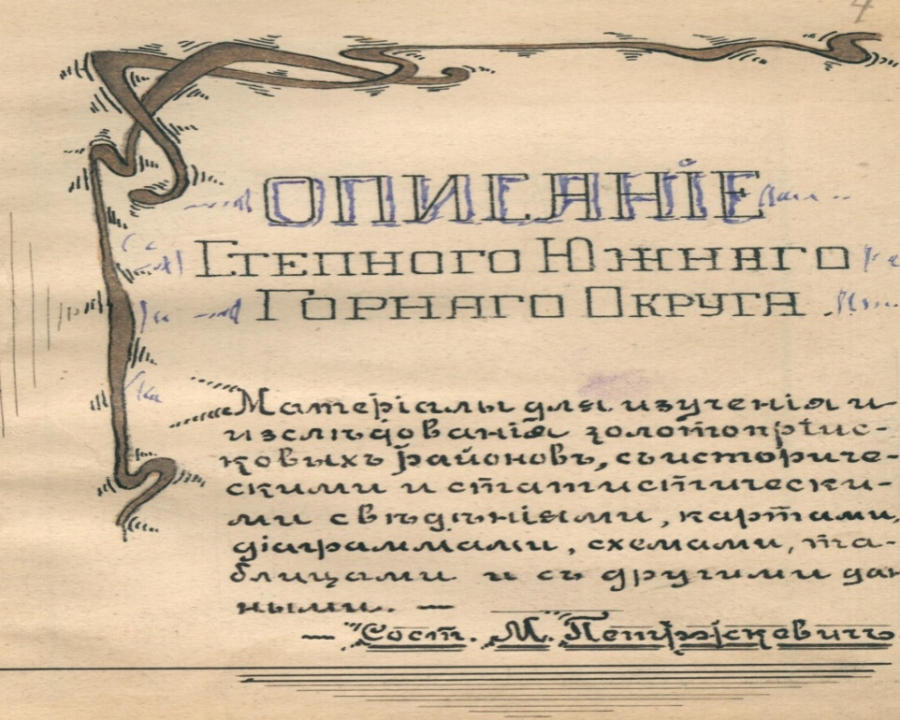 4
ОПИСАНІЕ
Степного Южнаго
Горнаго Округа
Матеріалы для изученія и
изслѣдованія золотопріис-
ковыхъ районовъ, съ историче-
скими и статистически-
ми свѣдѣніями, картами,
діаграммами, схемами, та-
блицами и съ другими дан
ными. —
— Сост. М. Петрожкевичъ